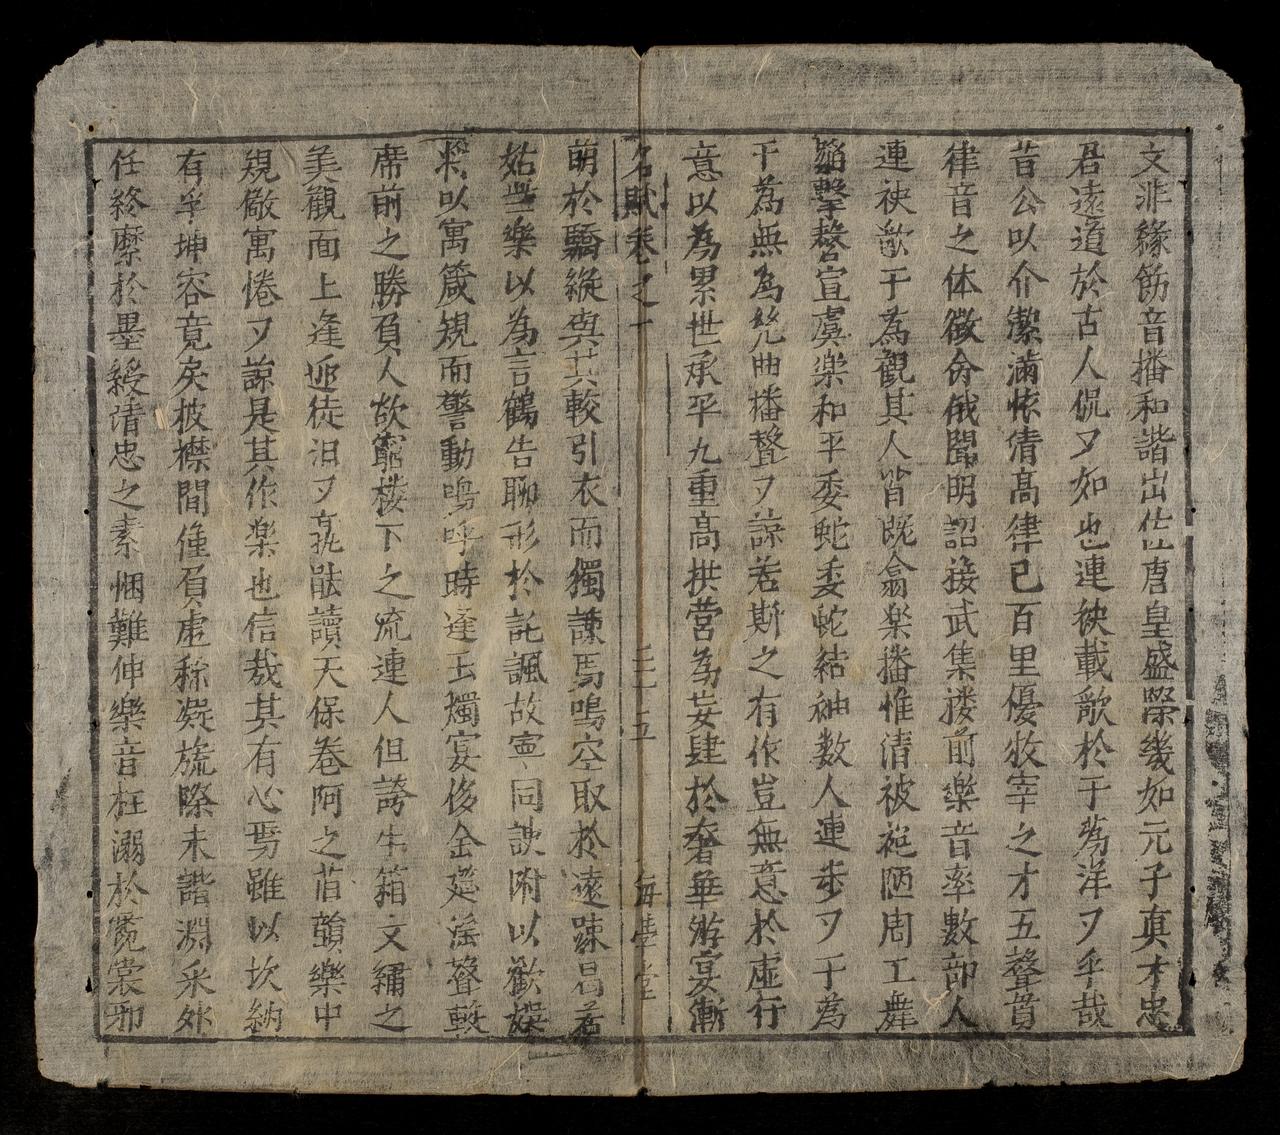 文非緣飭音播和諧出仕唐皇盛際幾如元子真才忠
君遠道於古人侃又如也連袂載歌於于蒍洋又乎哉
昔公以介潔滿懷倩高律己百里優牧宰之才五聲貫
律音之体徵分俄聞明詔接武集楼前樂音率數部人
連袂歌于為觀其人皆既翕楽播惟清被袍陋周工舞
擊磬宣虞楽和平委蛇委蛇結袖数人連歩又于為
于為無為凭曲播聲又諒若斯之有作豈無意於虛行
意以為累世承平九重高拱営為妄肆於奢華游宴漸
名賦巻之一 三十五 海學堂
萌於驕縱與其較引衣而獨諫馬鳴空取於遠踈曷若
始些樂以為言鶴告聊形於託諷故寧同諛附以歡娛
求以寓箴規而警動嗚呼時逢玉燭宴侈金筵淫聲較
席前之勝負人欲窮楼下之流連人但誇牛箱文繡之
美觀面上逢迎徒汨又孰猷讀天保卷阿之旨韻樂中
規儆寓惓又諒是其作楽也信哉其有心焉雖以坎納
有孚坤容竟矣披襟間僅負虛称凝旒際未諧淵采外
任終縻於墨綬清忠之素悃難伸樂音枉溺於霓裳邪